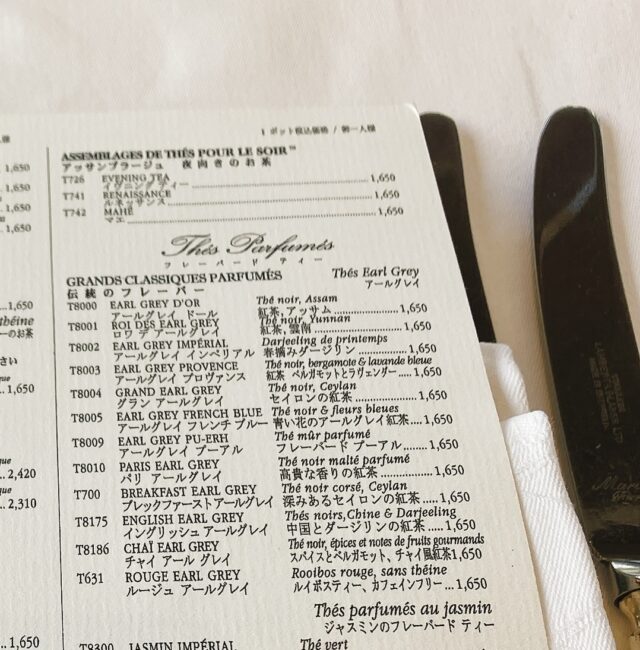 1 ポット税込価格 / 御一人様
様
1,650
1,650
1,650
1,650
1,650
1,650
2,420
2,310
1,650
ASSEMBLAGES DE THÉS POUR LE SOIR™
アッサンブラージュ 夜向きのお茶
T726 EVENING TEA
イヴニングティー 1,650
T741 RENAISSANCE
ルネッサンス 1,650
T742 MAHÉ
マエ 1,650
Thés Parfumés
フレーバード ティー
GRANDS CLASSIQUES PARFUMÉS Thés Earl Grey
伝統のフレーバー アールグレイ
T8000 EARL GREY D'OR Thé noir, Assam
アールグレイ ドール 紅茶, アッサム 1,650
T8001 ROI DES EARL GREY Thé noir, Yunnan
ロワ デ アールグレイ 紅茶, 雲南 1,650
T8002 EARL GREY IMPÉRIAL Darjeeling de printemps
アールグレイ インペリアル 春摘みダージリン 1,650
T8003 EARL GREY PROVENCE Thé noir, bergamote & lavande bleue
アールグレイ プロヴァンス 紅茶 ベルガモットとラヴェンダー 1,650
T8004 GRAND EARL GREY Thé noir, Ceylan
グラン アールグレイ セイロンの紅茶 1,650
T8005 EARL GREY FRENCH BLUE Thé noir & fleurs bleues
アールグレイ フレンチ ブルー 青い花のアールグレイ紅茶 1,650
T8009 EARL GREY PU-ERH Thé mûr parfumé
アールグレイ プーアール フレーバード プーアール 1,650
T8010 PARIS EARL GREY Thé noir malté parfumé
パリ アールグレイ 高貴な香りの紅茶 1,650
T700 BREAKFAST EARL GREY Thé noir corsé, Ceylan
ブレックファーストアールグレイ 深みあるセイロンの紅茶 1,650
T8175 ENGLISH EARL GREY Thés noirs, Chine & Darjeeling
イングリッシュ アールグレイ 中国とダージリンの紅茶 1,650
T8186 CHAÏ EARL GREY Thé noir, épices et notes de fruits gourmands
チャイ アール グレイ スパイスとベルガモット、チャイ風紅茶1,650
T631 ROUGE EARL GREY Rooibos rouge, sans théine
ルージュ アールグレイ ルイボスティー、カフェインフリー 1,650
Thés parfumés au jasmin
ジャスミンのフレーバード ティー
T8300 JASMIN IMPÉRIAL Thé vert